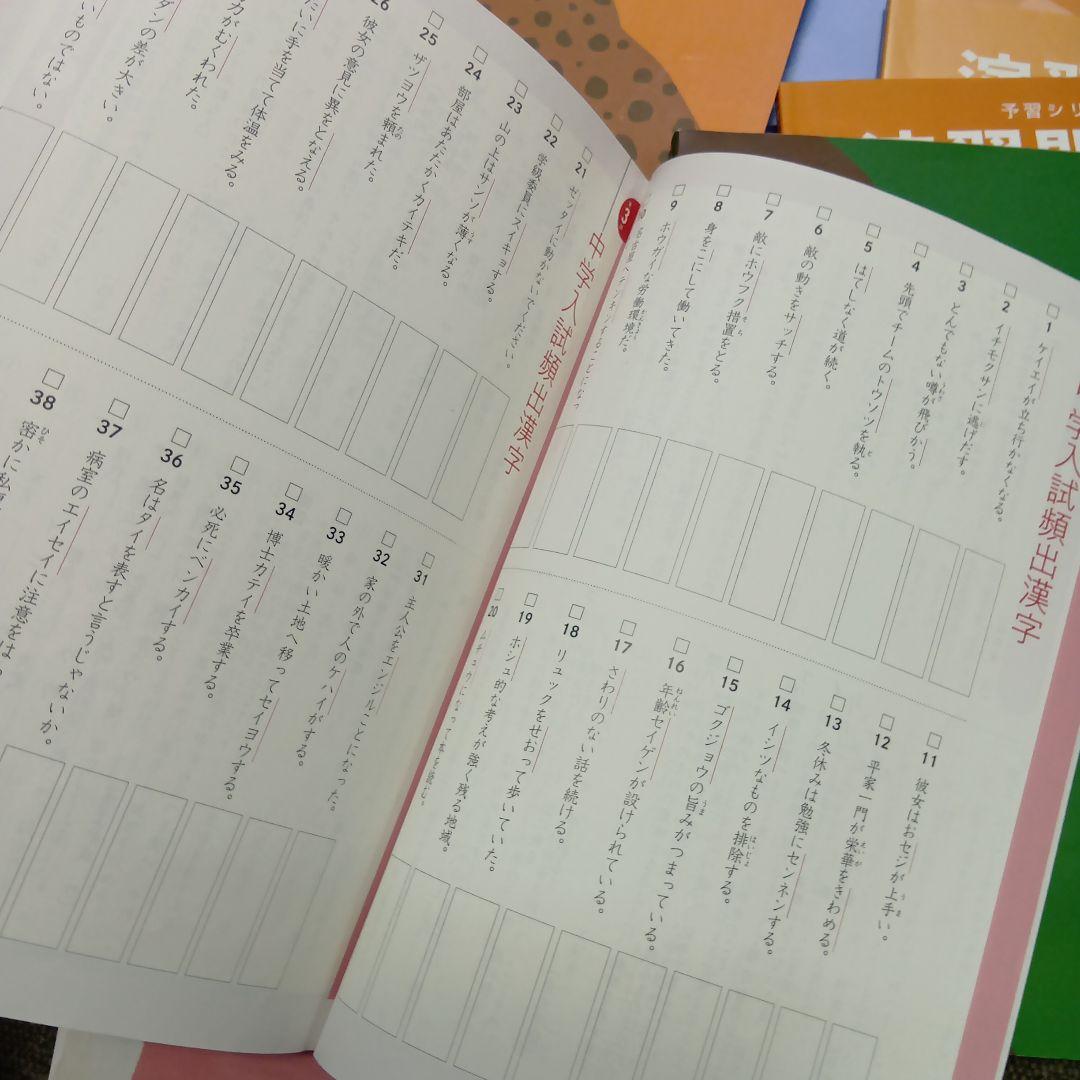 予習シリ
中学入試頻出漢字
1 ケイエイが立ち行かなくなる。
2 イチモクサンに逃げだす。
3 とんでもない噂が飛びかう。
4 先頭でチームのトウソツを執る。
5 はてしなく道が続く。
6 敵の動きをサッチする。
7 敵にホウフク措置をとる。
8 身をこにして働いてきた。
9 ホウガイな労働環境だ。
11 彼女はおセジが上手い。
12 平家一門が栄華をきわめる。
13 冬休みは勉強にセンネンする。
14 イシツなものを排除する。
15 ゴクジョウの旨みがつまっている。
16 年齢セイゲンが設けられている。
17 さわりのない話を続ける。
18 リュックをせおって歩いていた。
19 ホシュ的な考えが強く残る地域。
20 ムチュウになって本を読む。
3
中学入試頻出漢字
21 ゼッタイに動かないでください。
22 学級委員にスイキョする。
23 山の上はサンソが薄くなる。
24 部屋はあたたかくカイテキだ。
25 ザツヨウを頼まれた。
26 彼女の意見に異をとなえる。
たいに手を当てて体温をみる。
力がむくわれた。
ダンの差が大きい。
いものではない。
31 主人公をエンジルことになった。
32 家の外で人のケハイがする。
33 暖かい土地へ移ってセイヨウする。
34 博士カテイを卒業する。
35 必死にベンカイする。
36 名はタイを表すと言うじゃないか。
37 病室のエイセイに注意をは
38 密かに私